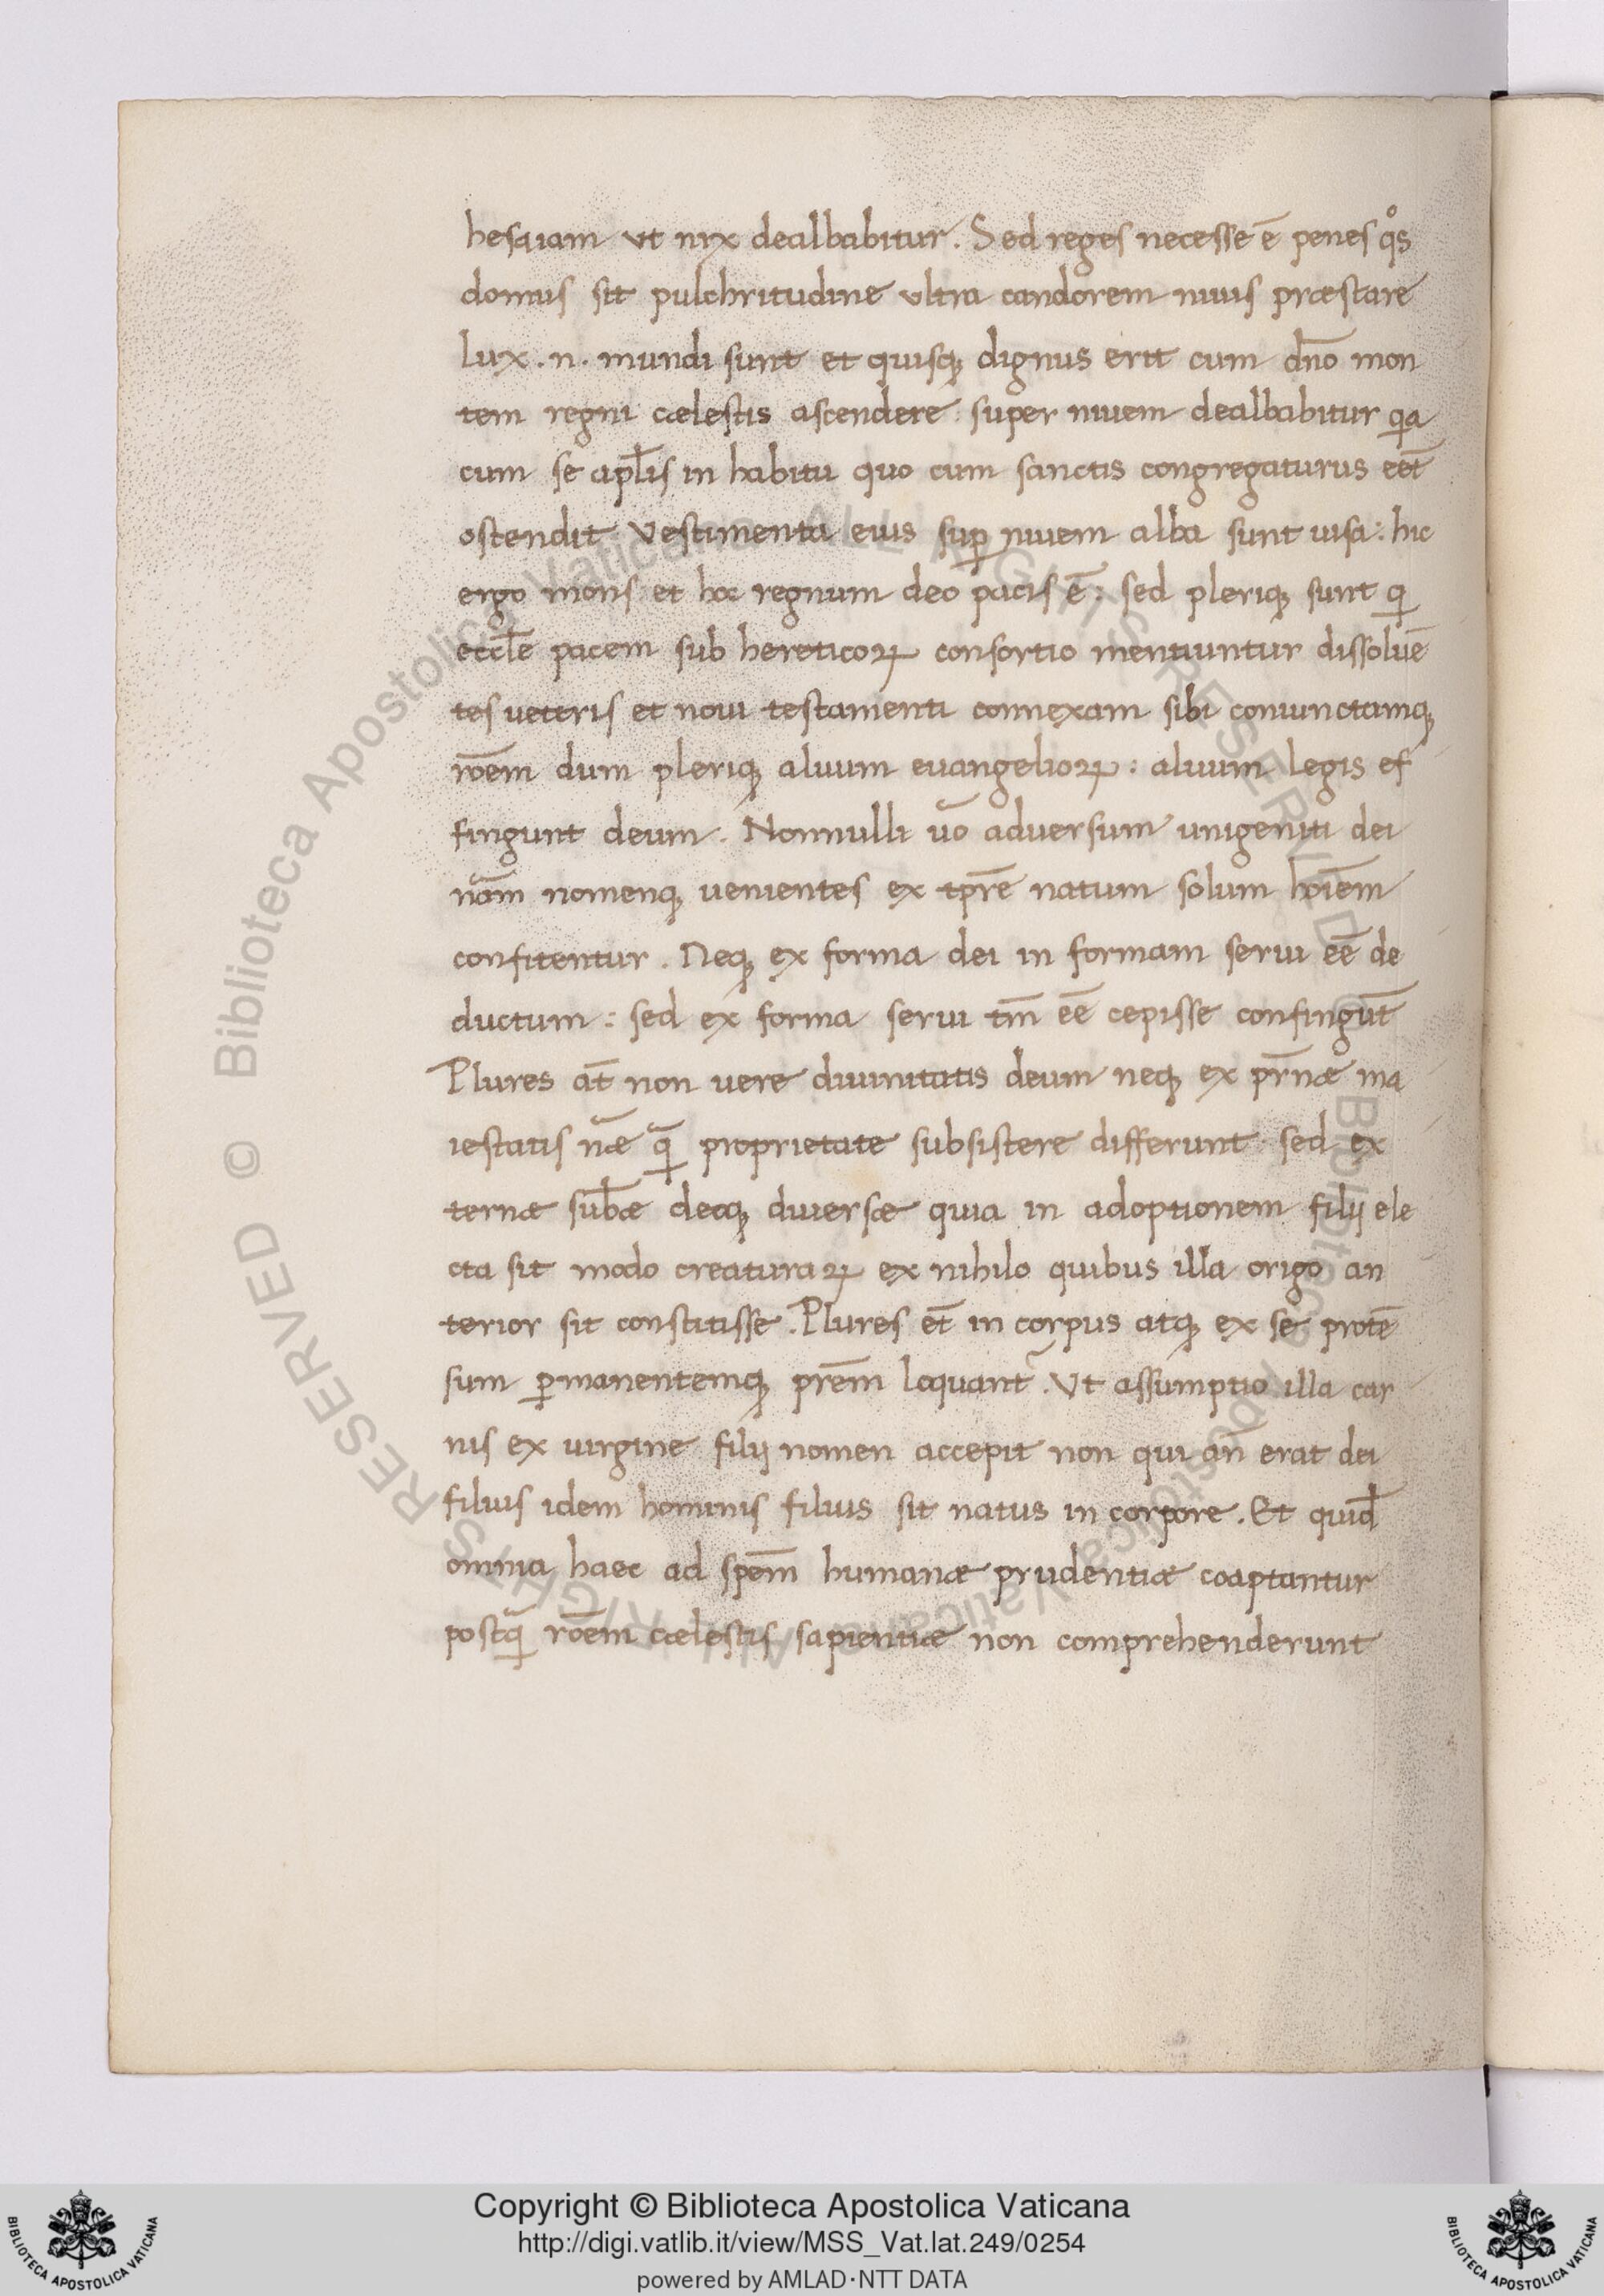 hesaiam ut nix dealbabitur. Sed reges necesse ē penes qͦs
domus sit pulchritudine ultra candorem niuis præstare
lux .n. mundi sunt et quisqꝫ dignus erit cum dn̄o mon
tem regni cælestis ascendere super niuem dealbabitur qia
cum se apl̄is in habitu quo cum sanctis congregaturus eēt
ostendit Vestimenta eius suꝑ niuem alba sunt uisa: hic
ergo mons et hoc regnum deo pacis ē: sed pleriqꝫ sunt qi
eccl̄e pacem sub hereticoꝝ consortio mentiuntur dissoluē
tes ueteris et noui testamenti connexam sibi coniunctamqꝫ
rōem dum pleriqꝫ aliuum euangelioꝝ: aliuum legis ef
fingunt deum. Nonnulli uō aduersum unigeniti dei
nām nomenqꝫ uenientes ex tp̄re natum solum hoīem
confitentur. Neqꝫ ex forma dei in formam serui eē de
ductum: sed ex forma serui tm̄ eē cepisse confingūt
Plures at̄ non uere diuinitatis deum neqꝫ ex pr̄næ ma
iestatis nāe qā proprietate subsistere differunt sed ex
ternæ sub̄æ deqꝫ diuersæ quia in adoptionem filii ele
cta sit modo creaturaꝝ ex nihilo quibus illa origo an
terior sit constitisse. Plures et̄ in corpus atqꝫ ex se protē
sum ꝑmanentemqꝫ pr̄em loquant᷑. Vt assumptio illa car
nis ex uirgine filii nomen accepit non qui an̄ erat dei
filius idem hominis filius sit natus in corpore. Et quid̄
omnia haec ad spēm humanæ prudentiæ coaptantur
postqā rōem cælestis sapientiæ non comprehenderunt
© Biblioteca Apostolica Vaticana ALL RIGHTS RESERVED © Biblioteca Apostolica Vaticana ALL RIGHTS RESERVED
Copyright © Biblioteca Apostolica Vaticana
http://digi.vatlib.it/view/MSS_Vat.lat.249/0254
powered by AMLAD·NTT DATA
BIBLIOTECA APOSTOLICA VATICANA
BIBLIOTECA APOSTOLICA VATICANA